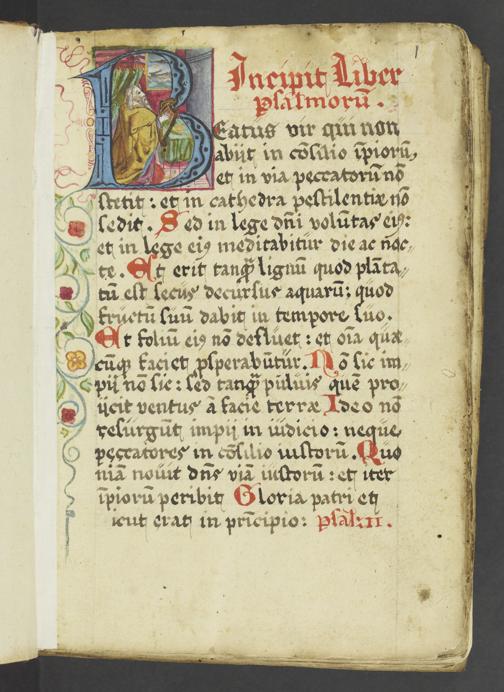 1
Incipit Liber
psalmorū.
Beatus vir qui non
abijt in cōsilio īpiorū,
et in via peccatorū nō
stetit : et in cathedra pestilentiæ nō
sedit. Sed in lege dñi volūtas eiꝰ:
et in lege eiꝰ meditabitur die ac noc-
te. Et erit tanq̄ lignū quod plāta-
tū est secus decursus aquarū; quod
fructū suū dabit in tempore suo.
Et foliū eiꝰ nō defluet : et oīa quæ
cūq̄ faciet ꝓsperabūtur. Nō sic im-
pii nō sic : sed tanq̄ puluis quē pro-
ijcit ventus à facie terræ Ideo nō
resurgūt impij in iudicio : neque
peccatores in cōsilio iustorū. Quo
niā nouit dñs viā iustorū : et iter
īpiorū peribit Gloria patri et
icut erat in prīcipio: psal: II.